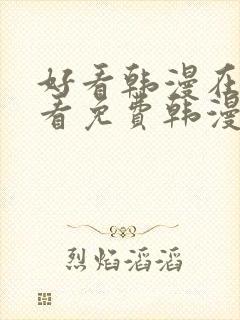 好看韩漫在
看免费韩漫
烈焰滔滔